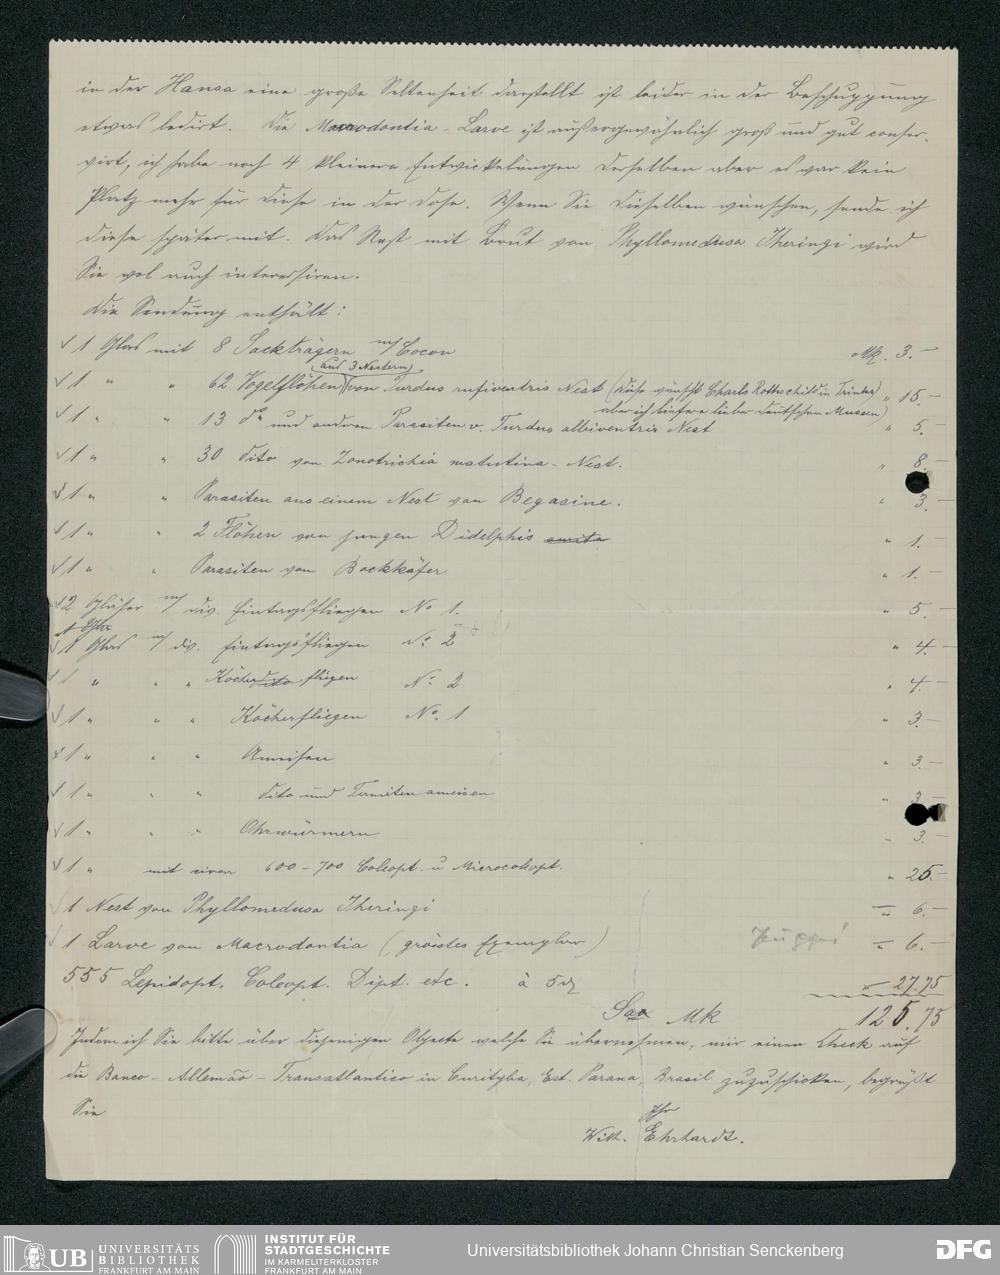 in der Hansa eine große Seltenheit darstellt ist leider in der Beschuppung
etwas ledirt. Die Macrodontia-Larve ist außergewöhnlich groß und gut conser-
virt, ich habe noch 4 kleinere Entwickelungen derselben aber es war kein
Platz mehr für diese in der Dose. Wenn Sie dieselben wünschen, sende ich
diese später mit. Das Nest mit Brut von Phyllomedusa Iheringi wird
Sie wol auch interessiren.
Die Sendung enthält:
1 Glas mit 8 Sackträgern m/ Cocon Mk. 3.-
(aus 3 Nestern)
1 " " 62 Vogelflöhen von Turdus rufiventris Nest (diese wünscht Charls Rothschild in Trinke) " 15.-
aber ich liefere lieber deutschen Museen)
1 " " 13 do und anderen Parasiten v. Turdus albiventris Nest " 5.-
1 " " 30 dito von Zonotrichia matutina-Nest. " 8.-
1 " " Parasiten aus einem Nest von Begasine. " 3.-
1 " " 2 Flöhen von jungen Didelphis aurita " 1.-
1 " " Parasiten von Bockkäfer " 1.-
2 Gläser m/ div. Eintagsfliegen No 1. " 5.-
1 Glas m/ div. Eintagsfliegen No 2 " 4.-
1 " " " Köcher dito fliegen No 2 " 4.-
1 " " " Köcherfliegen No. 1 " 3.-
1 " " " Ameisen " 3.-
1 " " " dito und Termiten ameisen " 3.-
1 " " " Ohrwürmern " 3.-
1 " mit circa 600-700 Coleopt. u Microcoleopt. " 25.-
1 Nest von Phyllomedusa Iheringi " 6.-
1 Larve von Macrodontia (grösstes Exemplar) " 6.-
555 Lepidopt. Coleopt. Dipt. etc. à 5 " 27.75
Sa Mk 125.75
Indem ich Sie bitte über diejenigen Objecte welche Sie übernehmen, mir einen Check auf
die Banco-Allemão-Transatlantico in Curityba, Est. Parana, Brasil zuzuschicken, begrüßt
Sie
Ihr
Wilh. Ehrhardt.
UB UNIVERSITÄTS
BIBLIOTHEK
FRANKFURT AM MAIN
INSTITUT FÜR
STADTGESCHICHTE
IM KARMELITERKLOSTER
FRANKFURT AM MAIN
Universitätsbibliothek Johann Christian Senckenberg
DFG